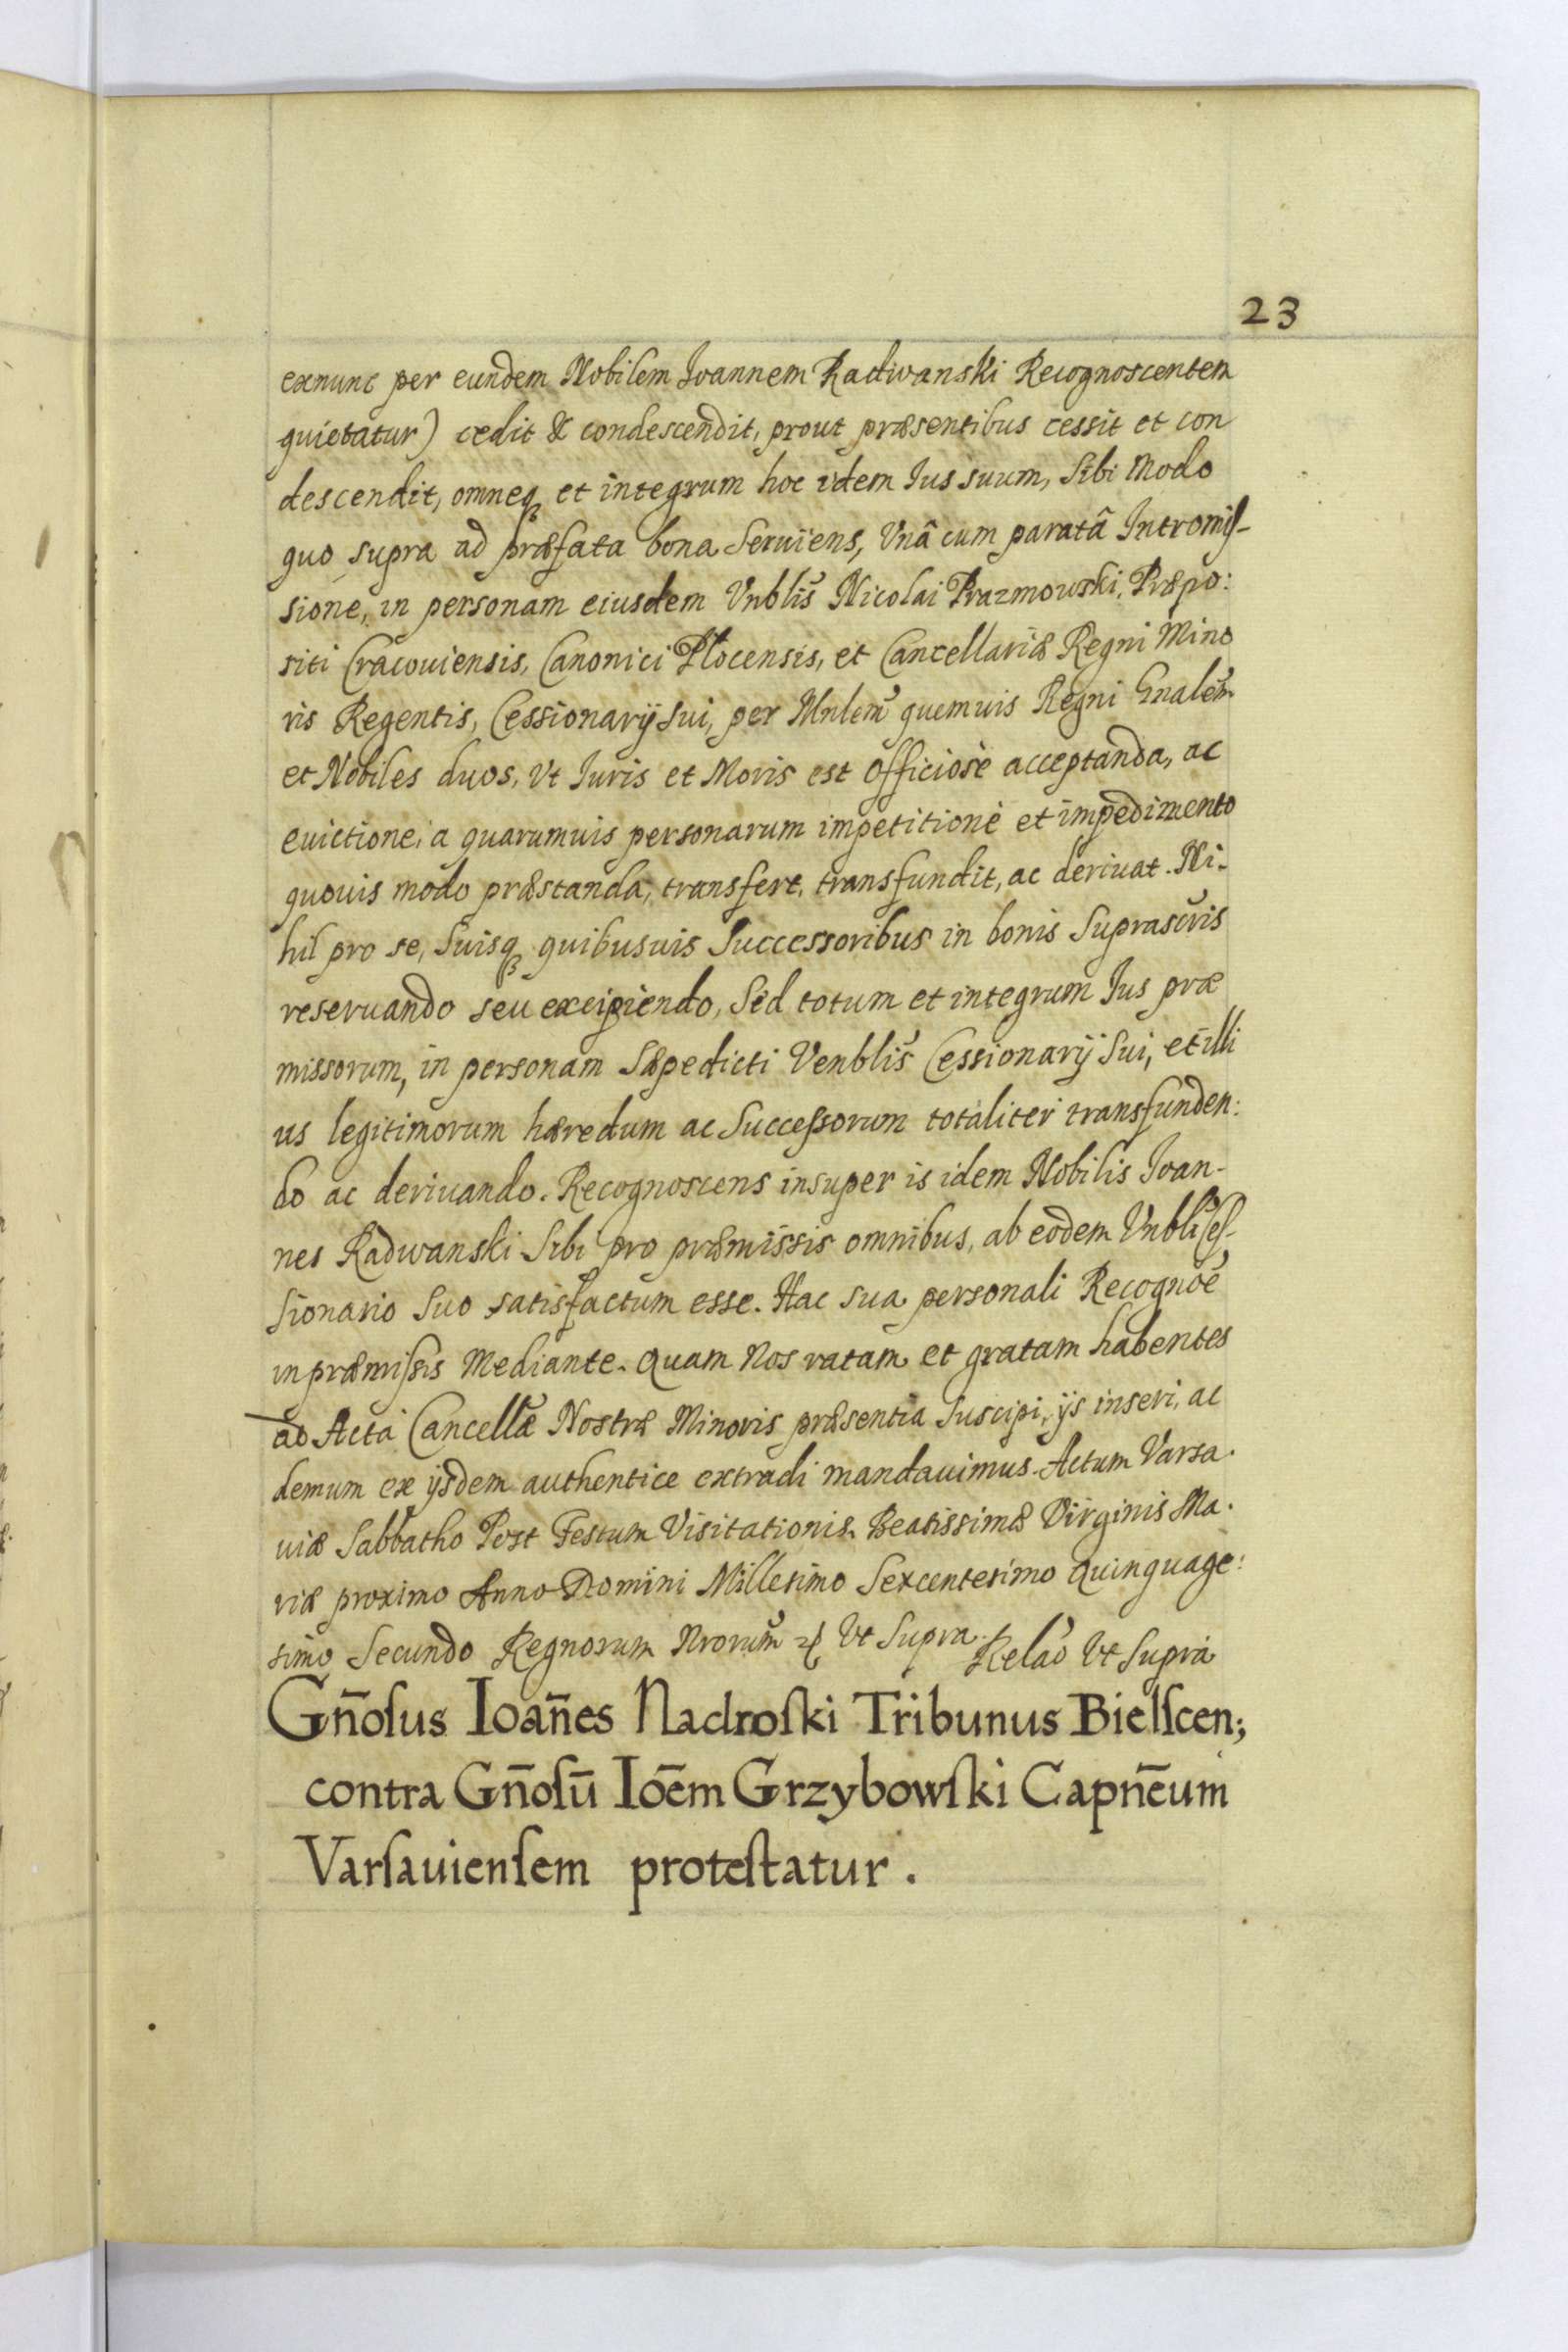 23
exnunc per eundem Nobilem Ioannem Radwanski Recognoscentem
quietatur) cedit & condescendit, prout præsentibus cessit et con
descendit, omneqꝫ et integrum hoc idem Ius suum, Sibi Modo
quo supra ad præfata bona Seruiens, Vnâ cum paratâ Intromis-
sione, in personam eiusdem Vnblis Nicolai Prazmowski, Præpo:
siti Cracouiensis, Canonici Plocensis, et Cancellariæ Regni Mino
ris Regentis, Cessionarij sui, per Mnlem quemuis Regni Gnalem
et Nobiles duos, Vt Iuris et Moris est Officiosè acceptanda, ac
euictione, a quarumuis personarum impetitione et impedimento
quouis modo præstanda, transfert, transfundit, ac deriuat. Ni-
hil pro se, Suisqꝫ quibusuis Successoribus in bonis Suprascris
reseruando seu excipiendo, Sed totum et integrum Ius præ
missorum, in personam Sæpedicti Venblis Cessionarij Sui, et illi
us legitimorum hæredum ac Successorum totaliter transfunden:
do ac deriuando. Recognoscens insuper is idem Nobilis Ioan-
nes Radwanski Sibi pro præmissis omnibus, ab eodem Vnbli Ces-
sionario Suo satisfactum esse. Hac sua personali Recognõe
in præmissis Mediante. Quam Nos ratam et gratam habentes
ad Acta Cancellæ Nostræ Minoris præsentia Suscipi, ijs inseri, ac
demum ex ijsdem authentice extradi mandauimus. Actum Varsa-
uiæ Sabbatho Post Festum Visitationis Beatissimæ Virginis Ma-
riæ proximo Anno Domini Millesimo Sexcentesimo Quinquage:
simo Secundo Regnorum Nrorum ꝛc Vt Supra. Relaõ Vt Supra
Gñosus Ioañes Nadroski Tribunus Bielscen;
contra Gñosū Ioēm Grzybowski Capnēum
Varsauiensem protestatur.